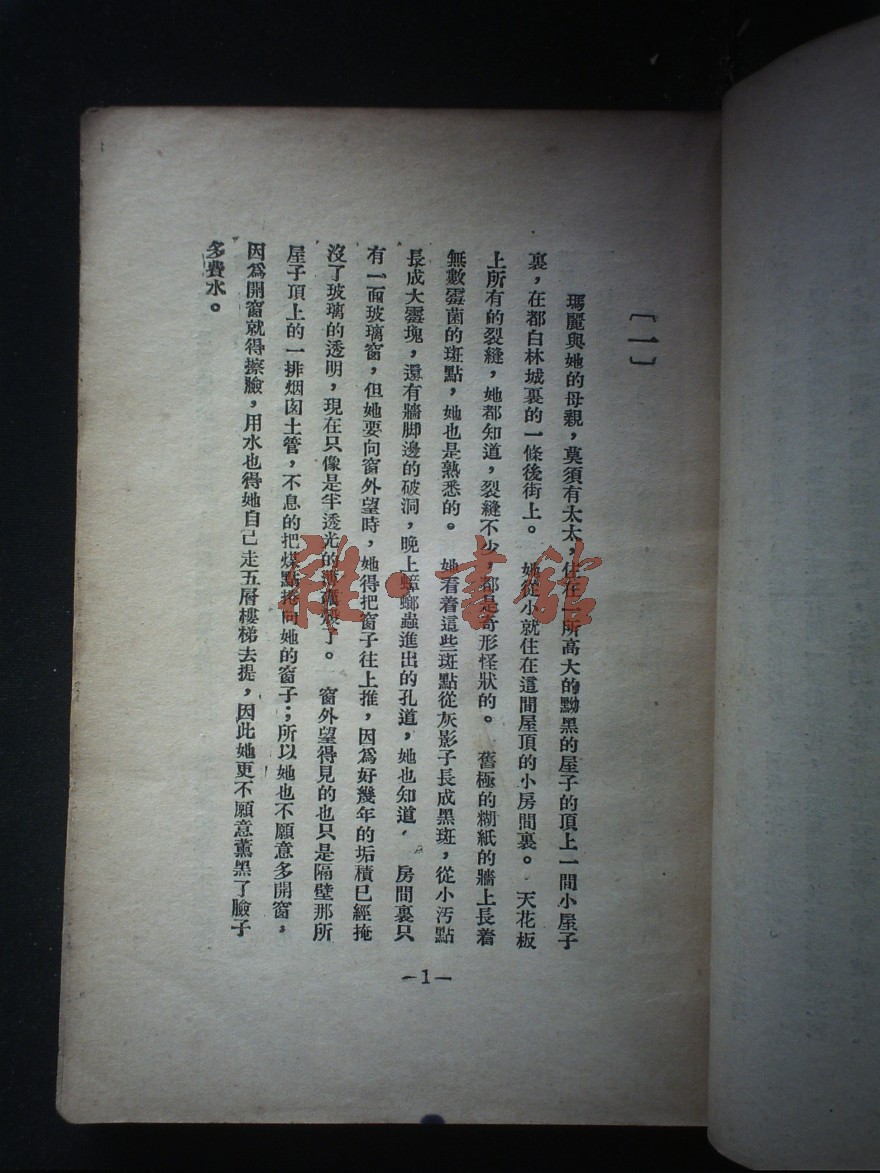 〔一〕
瑪麗與她的母親，莫須有太太，住在一所高大的黝黑的屋子的頂上一間小屋子
裏，在都白林城裏的一條後街上。 她從小就住在這間屋頂的小房間裏。 天花板
上所有的裂縫，她都知道，裂縫不少，都是奇形怪狀的。 舊極的糊紙的牆上長着
無數霉菌的斑點，她也是熟悉的。 她看着這些斑點從灰影子長成黑斑，從小汚點
長成大霉塊，還有牆脚邊的破洞，晚上蟑螂蟲進出的孔道，她也知道， 房間裏只
有一面玻璃窗，但她要向窗外望時，她得把窗子往上推，因爲好幾年的垢積已經掩
沒了玻璃的透明，現在只像是半透光的了。 窗外望得見的也只是隔壁那所
屋子頂上的一排烟囱土管，不息的把煤點捲向她的窗子；所以她也不願意多開窗，
因爲開窗就得擦臉，用水也得她自己走五層樓梯去提，因此她更不願意薰黑了臉子
多費水。
—1—
雜·書館